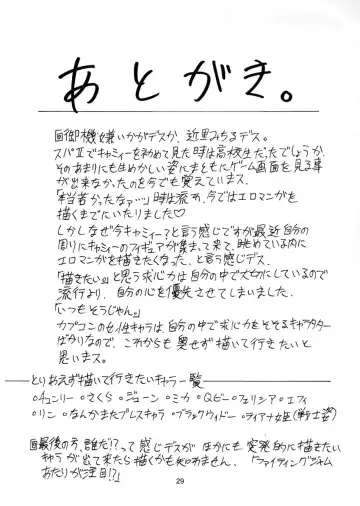 あとがき。
回御機嫌いかがデスか、近里みちるデス。
スパⅡでキャミィーを初めて見た時は高校生だったでしょうか
そのあまりにも生めかしい姿にまともにゲーム画面を見る事
が出来なかったのを今でも覚えていまス。
「若かったなァ…」時は流れ、今ではエロマンガを
描くまでにいたりました♡
しかしなぜ今キャミィーと言う感じでスが最近自分の
周りにキャミーのフィギュアが集まって来て、眺めている内に
エロマンガを描きたくなった、と言う感じデス。
「描きたい」と思う求心力は自分の中で大切にしているので
流行より、自分の心を優先させてしまいました。
「いつもそうじゃん」
カプコンの女性キャラは、自分の中で求心力をそそるキャラクター
ばかりなので、これからも臆せず描いて行きたいと
思いまス。
とりあえず描いて行きたいキャラ一覧
○チュンリー ○さくら ○ジューン ○ミカ ○Q.ビー ○フェリシア ○エフィ
○リン ○なんかまたプレスキャラ ○ブラックウィドー ○ティアナ姫(戦士姿)
回最後の方、誰だ!?って感じデスがほかにも突発的に描きたい
キャラが出て来たら描くかも知れません、「ファイティングジャム
あたりが注目!?」
29